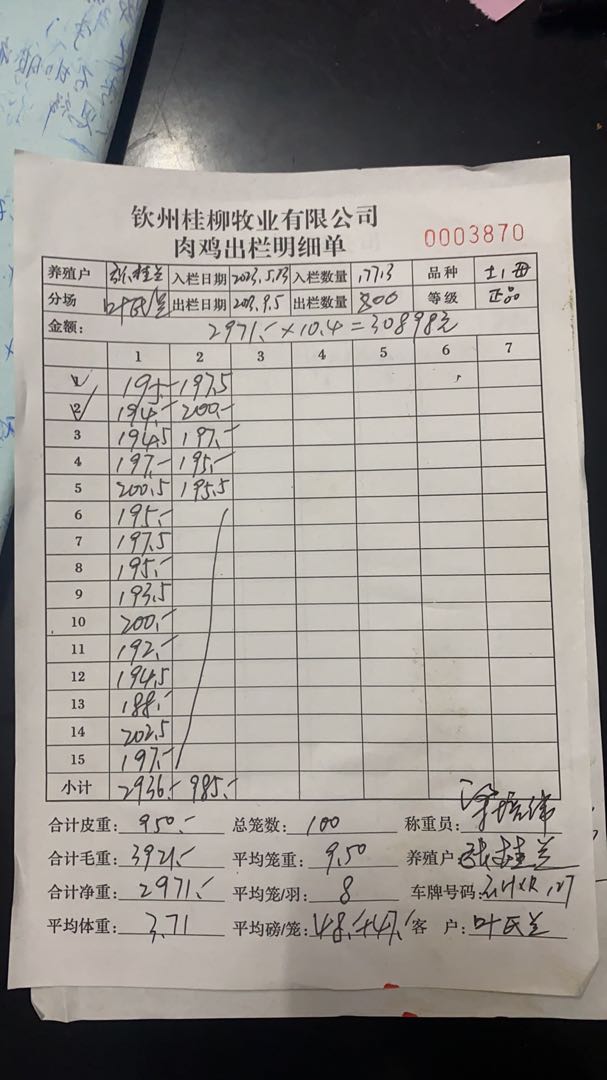 钦州桂柳牧业有限公司
肉鸡出栏明细单
0003870
养殖户 张桂兰 入栏日期 2023.5.13 入栏数量 1773 品种 土1母
分场 叶氏兰 出栏日期 2023.9.5 出栏数量 800 等级 正品
金额: 2971.- ×10.4=30898元
1 2 3 4 5 6 7
1 195.- 197.5
2 194.- 200.-
3 194.5 197.-
4 197.- 195.-
5 200.5 195.5
6 195.-
7 197.5
8 195.-
9 193.5
10 200.-
11 192.-
12 194.5
13 188.-
14 202.5
15 197.-
小计 2936.- 985.-
合计皮重: 950.- 总笼数: 100 称重员:
合计毛重: 3921.- 平均笼重: 9.50 养殖户: 张桂兰
合计净重: 2971.- 平均笼/羽: 8 车牌号码:
平均体重: 3.71 平均磅/笼: 48.-+47.- 客 户: 叶氏兰